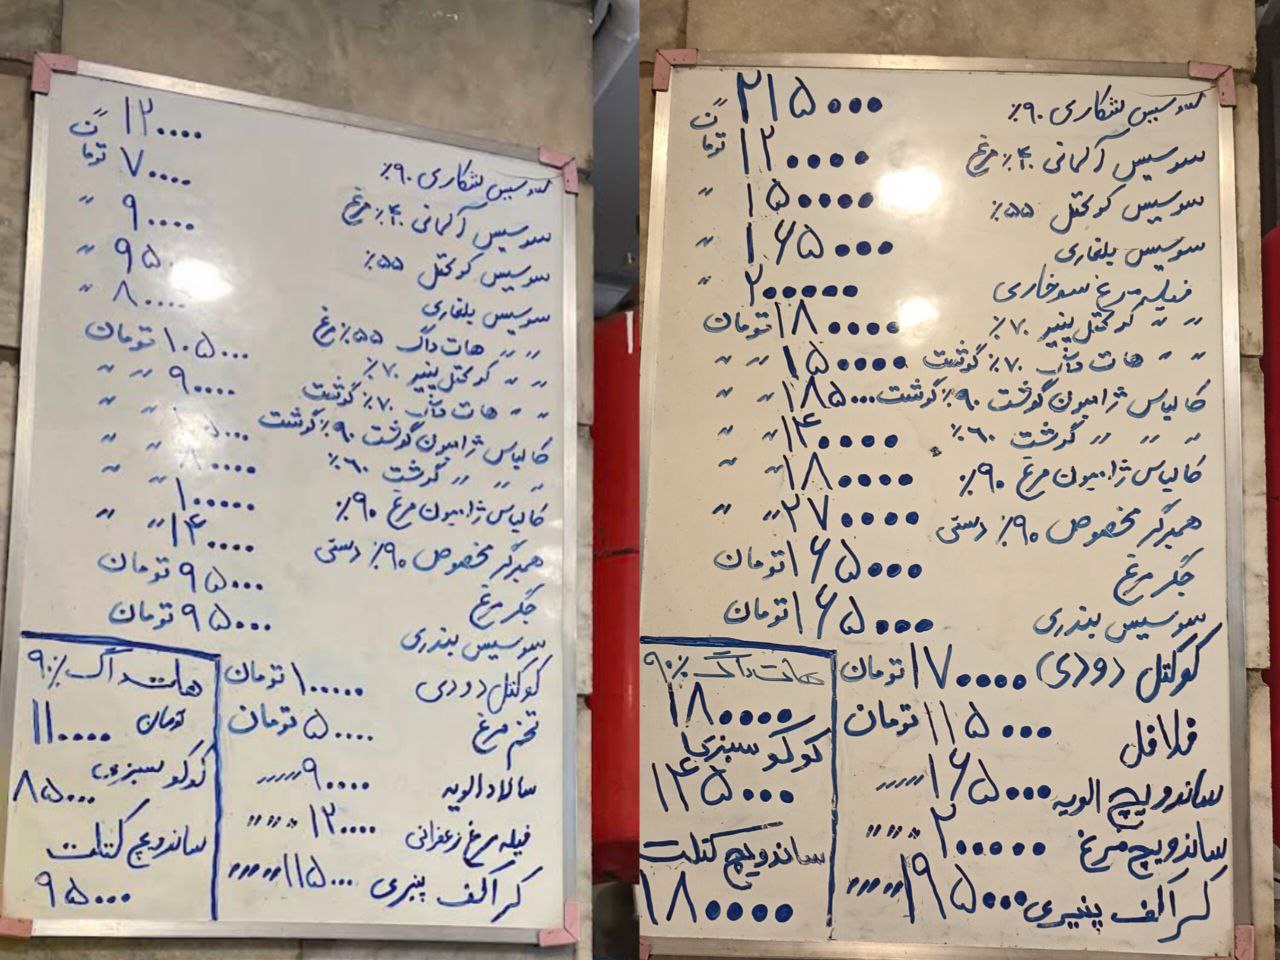 ۱۲۰۰۰۰ ت
سوسیس شکاری ۹۰٪ ۷۰۰۰۰ تومان
سوسیس آلمانی ۴۰٪ مرغ ۹۰۰۰۰ "
سوسیس کوکتل ۵۵٪ ۹۵۰ "
سوسیس بلغاری ۸۰۰۰۰ "
" " هات داگ ۵۵٪ مرغ ۱۰۵۰۰۰ تومان
" " کوکتل پنیر ۷۰٪ ۹۰۰۰۰ " "
" " هات داگ ۷۰٪ گوشت " "
کالباس ژامبون گوشت ۹۰٪ گوشت ۰۰۰ " "
" " " گوشت ۶۰٪ ۸۰۰۰۰ " "
کالباس ژامبون مرغ ۹۰٪ ۱۰۰۰۰۰ " "
همبرگر مخصوص ۹۰٪ دستی ۱۴۰۰۰۰ " "
جگر مرغ ۹۵۰۰۰ تومان
سوسیس بندری ۹۵۰۰۰ تومان
کوکتل دودی ۱۰۰۰۰۰ تومان
تخم مرغ ۵۰۰۰۰ تومان
سالاد الویه ۹۰۰۰۰ """"
فیله مرغ زعفرانی ۱۳۰۰۰۰ """"
کراکف پنیری ۱۱۵۰۰۰ """"
هات داگ ۹۰٪
۱۱۰۰۰۰ تومان
کوکو سبزی
۸۵۰۰۰
ساندویچ کتلت
۹۵۰۰۰
سوسیس شکاری ۹۰٪ ۲۱۵۰۰۰ ت
سوسیس آلمانی ۴۰٪ مرغ ۱۲۰۰۰۰ تومان
سوسیس کوکتل ۵۵٪ ۱۵۰۰۰۰ "
سوسیس بلغاری ۱۶۵۰۰۰ "
فیله مرغ سوخاری ۲۰۰۰۰۰ "
" " کوکتل پنیر ۷۰٪ ۱۸۰۰۰۰ تومان
" " هات داگ ۷۰٪ گوشت ۱۵۰۰۰۰ " "
کالباس ژامبون گوشت ۹۰٪ گوشت ۱۸۵۰۰۰ " "
" " " گوشت ۶۰٪ ۱۴۰۰۰۰ " "
کالباس ژامبون مرغ ۹۰٪ ۱۸۰۰۰۰ " "
همبرگر مخصوص ۹۰٪ دستی ۲۷۰۰۰۰ " "
جگر مرغ ۱۶۵۰۰۰ تومان
سوسیس بندری ۱۶۵۰۰۰ تومان
کوکتل دودی ۱۷۰۰۰۰ تومان
فلافل ۱۱۵۰۰۰ تومان
ساندویچ الویه ۱۶۵۰۰۰ """"
ساندویچ مرغ ۲۰۰۰۰۰ """"
کراکف پنیری ۱۹۵۰۰۰ """"
هات داگ ۹۰٪
۱۸۰۰۰۰
کوکو سبزی
۱۴۵۰۰۰
ساندویچ کتلت
۱۸۰۰۰۰